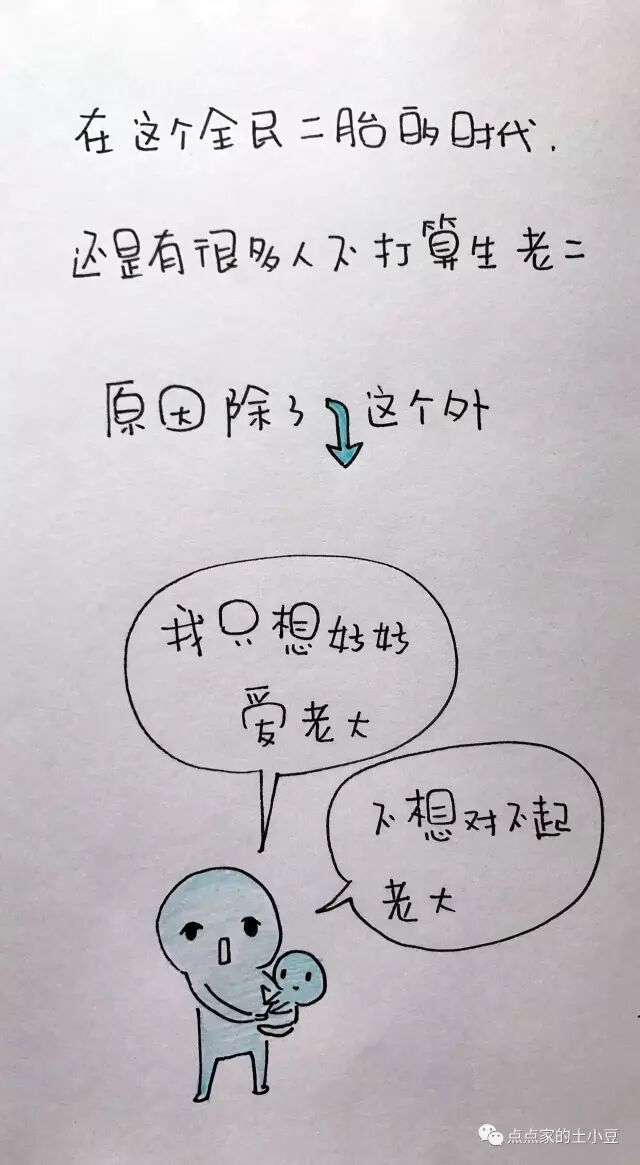 在这个全民二胎的时代.
还是有很多人不打算生老二
原因除了这个外
我只想好好
爱老大
不想对不起
老大
点点家的土小豆